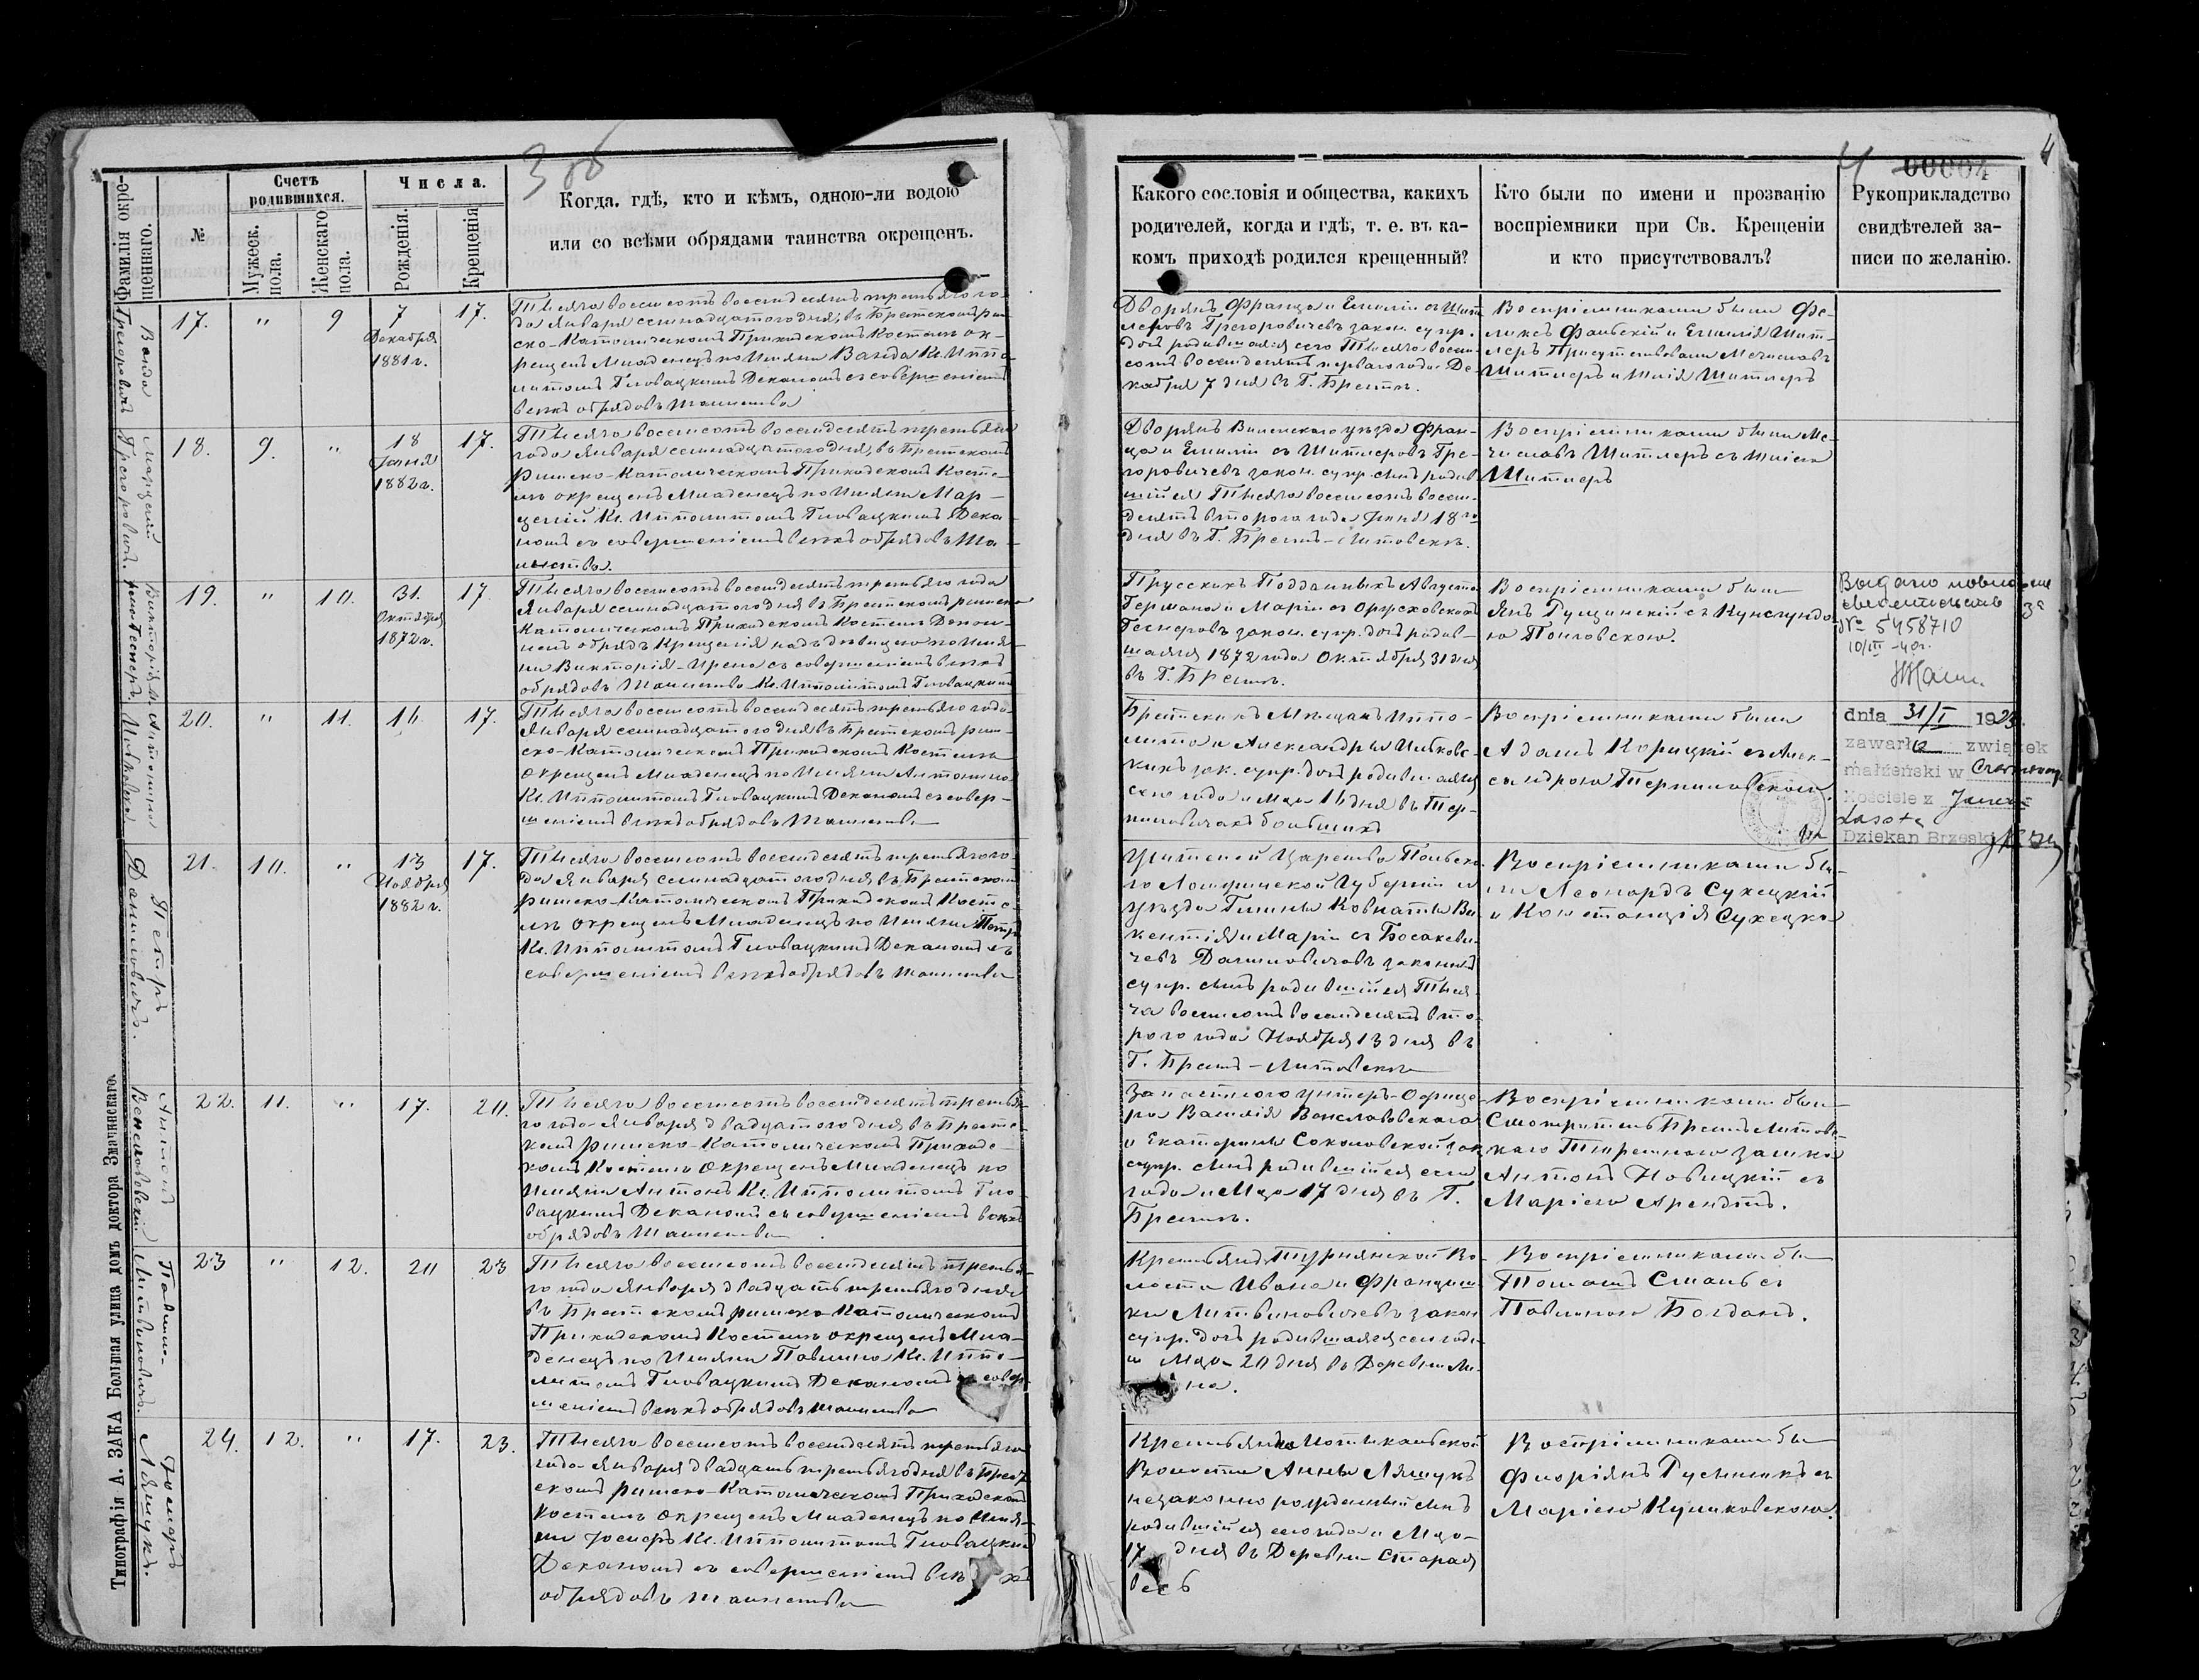 3 об
Фамилія окре-
щеннаго.
№
Счетъ
родившихся.
Мужеск.
пола.
Женскаго
пола.
Числа.
Рожденія.
Крещенія.
Когда, гдѣ, кто и кѣмъ, одною-ли водою
или со всѣми обрядами таинства окрещенъ.
Ванда
Григоровичъ
17. " 9 7 17.
Декабря
1881 г.
Тысяча восемсотъ восемдесятъ третьяго го-
да Января семнадцатого дня, въ Брестскомъ рим
ско-Католическомъ Приходскомъ Костелѣ ок-
рещенъ Младенецъ по Имяни Ванда Кс. Иппо-
литомъ Гловацкимъ Деканомъ съ совершеніемъ
всѣхъ обрядовъ таинства
Марцелій
Грегоровичъ.
18. 9. " 18 17.
Іюня
1882 г.
Тысяча восемсотъ восемдесятъ третьяго
года Января семнадцатого дня, въ Брестскомъ
Римско-Католическомъ Приходскомъ Косте-
лѣ окрещенъ Младенецъ по Имяни Мар-
целій Кс. Ипполитомъ Гловацкимъ Дека-
номъ съ совершеніемъ всѣхъ обрядовъ Та-
инства.
Викторія
Геснеръ.
19. " 10. 31. 17
Октября
1872 г.
Тысяча восемсотъ восемдесятъ третьяго года
Января семнадцатого дня въ Брестскомъ римско
Католическомъ Приходскомъ Костелѣ Допол-
ненъ обрядъ Крещенія надъ дѣвицею по Имя-
ни Викторія-Ирена съ совершеніемъ всѣхъ
обрядовъ Таинства Кс. Ипполитомъ Гловацкимъ
Антонина
20. " 11. 16 17.
Тысяча восемсотъ восемдесятъ третьяго года
Января семнадцатого дня въ Брестскомъ рим-
ско-Католическомъ Приходскомъ Костелѣ
окрещенъ Младенецъ по Имяни Антонина
Кс. Ипполитомъ Гловацкимъ Деканомъ съ совер-
шеніемъ всѣхъ обрядовъ Таинства
Петръ
Даниловичъ.
21. 10. " 13 17.
Ноября
1882 г.
Тысяча восемсотъ восемдесятъ третьяго го-
да Января семнадцатого дня въ Брестскомъ
римско-Католическомъ Приходскомъ Косте-
лѣ окрещенъ Младенецъ по Имяни Петръ
Кс. Ипполитомъ Гловацкимъ Деканомъ съ
совершеніемъ всѣхъ обрядовъ таинства
Антонъ
Венславовскій
22. 11. " 17. 20.
Тысяча восемсотъ восемдесятъ третья-
го года Января двадцатого дня въ Брестс-
комъ римско-Католическомъ Приходс-
комъ Костелѣ окрещенъ Младенецъ по
Имяни Антонъ Кс. Ипполитомъ Гло-
вацкимъ Деканомъ съ совершеніемъ всѣхъ
обрядовъ Таинства
Павлина
Литвиновичъ.
23 " 12. 20 23
Тысяча восемсотъ восемдесятъ третья-
го года Января двадцать третьяго дня
въ Брестскомъ римско Католическомъ
Приходскомъ Костелѣ окрещенъ Мла-
денецъ по Имяни Павлина Кс. Иппо-
литомъ Гловацкимъ Деканомъ съ совер-
шеніемъ всѣхъ обрядовъ таинства
Іосифъ
Ляшукъ.
24. 12. " 17. 23.
Тысяча восемсотъ восемдесятъ третьяго
года Января двадцать третьяго дня въ Брест
скомъ римско-Католическомъ Приходскомъ
Костелѣ окрещенъ Младенецъ по Имя-
ни Іосифъ Кс. Ипполитомъ Гловацкимъ
Деканомъ съ совершеніемъ всѣхъ
обрядовъ таинства
Типографія А. ЗАКА Большая улица домъ доктора Змачинскаго.
4 00004 4
Какого сословія и общества, какихъ
родителей, когда и гдѣ, т. е. въ ка-
комъ приходѣ родился крещенный?
Кто были по имени и прозванію
воспріемники при Св. Крещеніи
и кто присутствовалъ?
Рукоприкладство
свидѣтелей за-
писи по желанію.
Дворянъ Франца и Емиліи съ Шит
леровъ Грегоровичевъ закон. супр.
дочь родившаяся сего Тысяча восем-
сотъ восемдесятъ перваго года Де-
кабря 7 дня въ Г. Брестѣ.
Воспріемниками были Фе-
ликсъ Фальскій и Емилія Шит-
леръ Присутствовали Мечиславъ
Шитлеръ и Юлія Шитлеръ
Дворянъ Виленскаго уѣзда Фран-
ца и Емиліи съ Шитлеровъ Гре-
горовичевъ закон. супр. сынъ родив-
шійся Тысяча восемсотъ восем-
десятъ второго года Іюня 18 го
дня въ Г. Брестѣ-Литовскѣ.
Воспріемниками были Ме-
числавъ Шитлеръ съ Юліею
Шитлеръ
Прусскихъ Подданныхъ Августа
Германа и Маріи съ Оржховскихъ
Геснеровъ закон. супр. дочь родив-
шаяся 1872 года Октября 31 дня
въ Г. Брестѣ.
Воспріемниками были
Янъ Гущинскій съ Кунегундо-
ю Павловскою.
за
№ 5458710
10/III -40г.
Брестскихъ Мѣщанъ Иппо-
лита и Александры
кихъ зак. супр. дочь родившаяся
сего года и Мца 16 дня въ Тер-
миновичахъ большихъ
Воспріемниками были
Адамъ Корицкій съ Алек-
сандрою
dnia 31/I 1923.
zawarła związek
małżeński w
Kościele z
Lasota
Dziekan Brzeski
Жителей Царства Польска-
го Ломжинской Губерніи и
Уѣзда Гмины Ковнаты Ви-
кентія и Маріи съ Босакеви-
чевъ Даниловичовъ законныхъ
супр. сынъ родившійся Тыся-
ча восемсотъ восемдесятъ вто-
рого года Ноября 13 дня въ
Г. Брестѣ-Литовскѣ
Воспріемниками бы-
ли Леонардъ Сухецкій
и Констанція Сухецка
Запаснаго Унтеръ-Офице-
ра Василія Венславовскаго
и Екатерины Соколовской зак
супр. сынъ родившійся сего
года и Мца 17 дня въ Г.
Брестѣ.
Воспріемниками были
Смотритель Брестъ Литовс-
каго Тюремнаго замка
Антонъ Новицкій съ
Маріею Арендтъ.
Крестьянъ Во-
лости Ивана и Францишк-
ки Литвиновичевъ закон
супр. дочь родившаяся сего года
и Мца 20 дня въ Деревни
на.
Воспріемниками бы
Томашъ съ
Павлиною Богданъ.
Крестьянки Мотыкальской
Волости Анны Ляшукъ
незаконно рожденный сынъ
родившійся сего года и Мца
17 дня въ Деревни Старая
весь
Воспріемниками бы
Флоріянъ съ
Маріею Куликовскою.